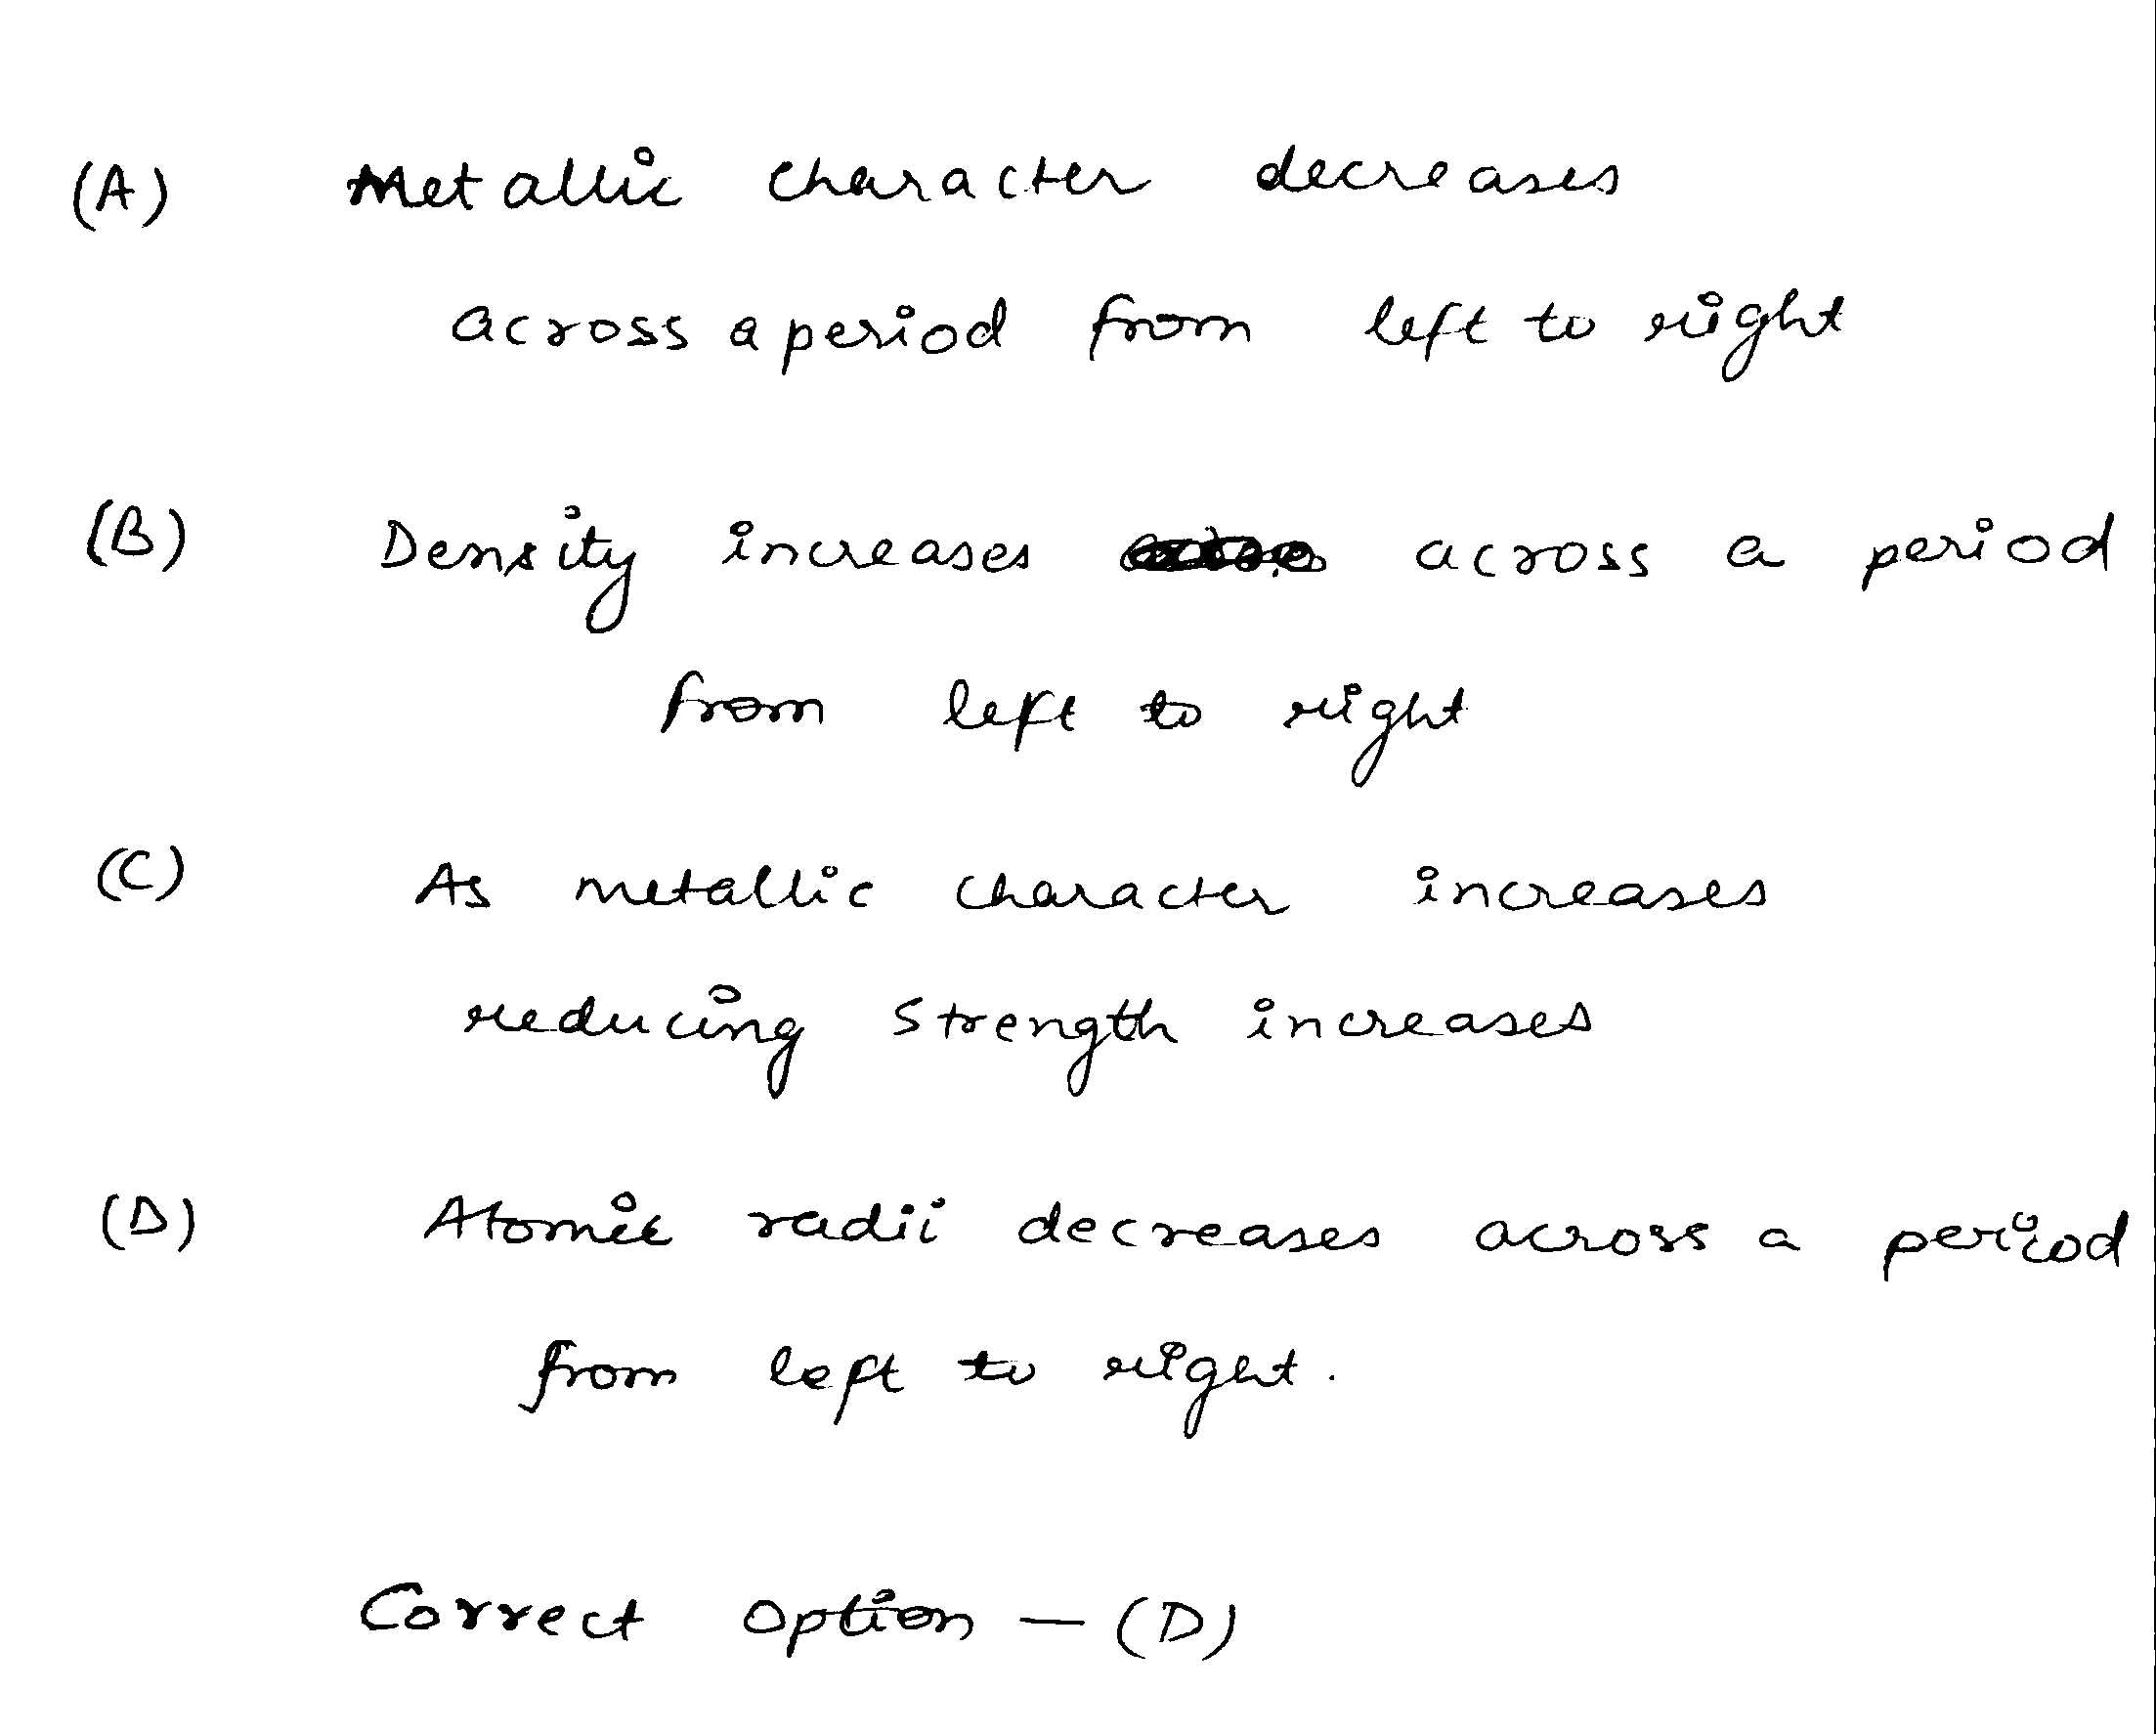 (A) Metallic character decreases
across a period from left to right
(B) Density increases across a period
from left to right
(C) As metallic character increases
reducing strength increases
(D) Atomic radii decreases across a period
from left to right.
Correct option - (D)